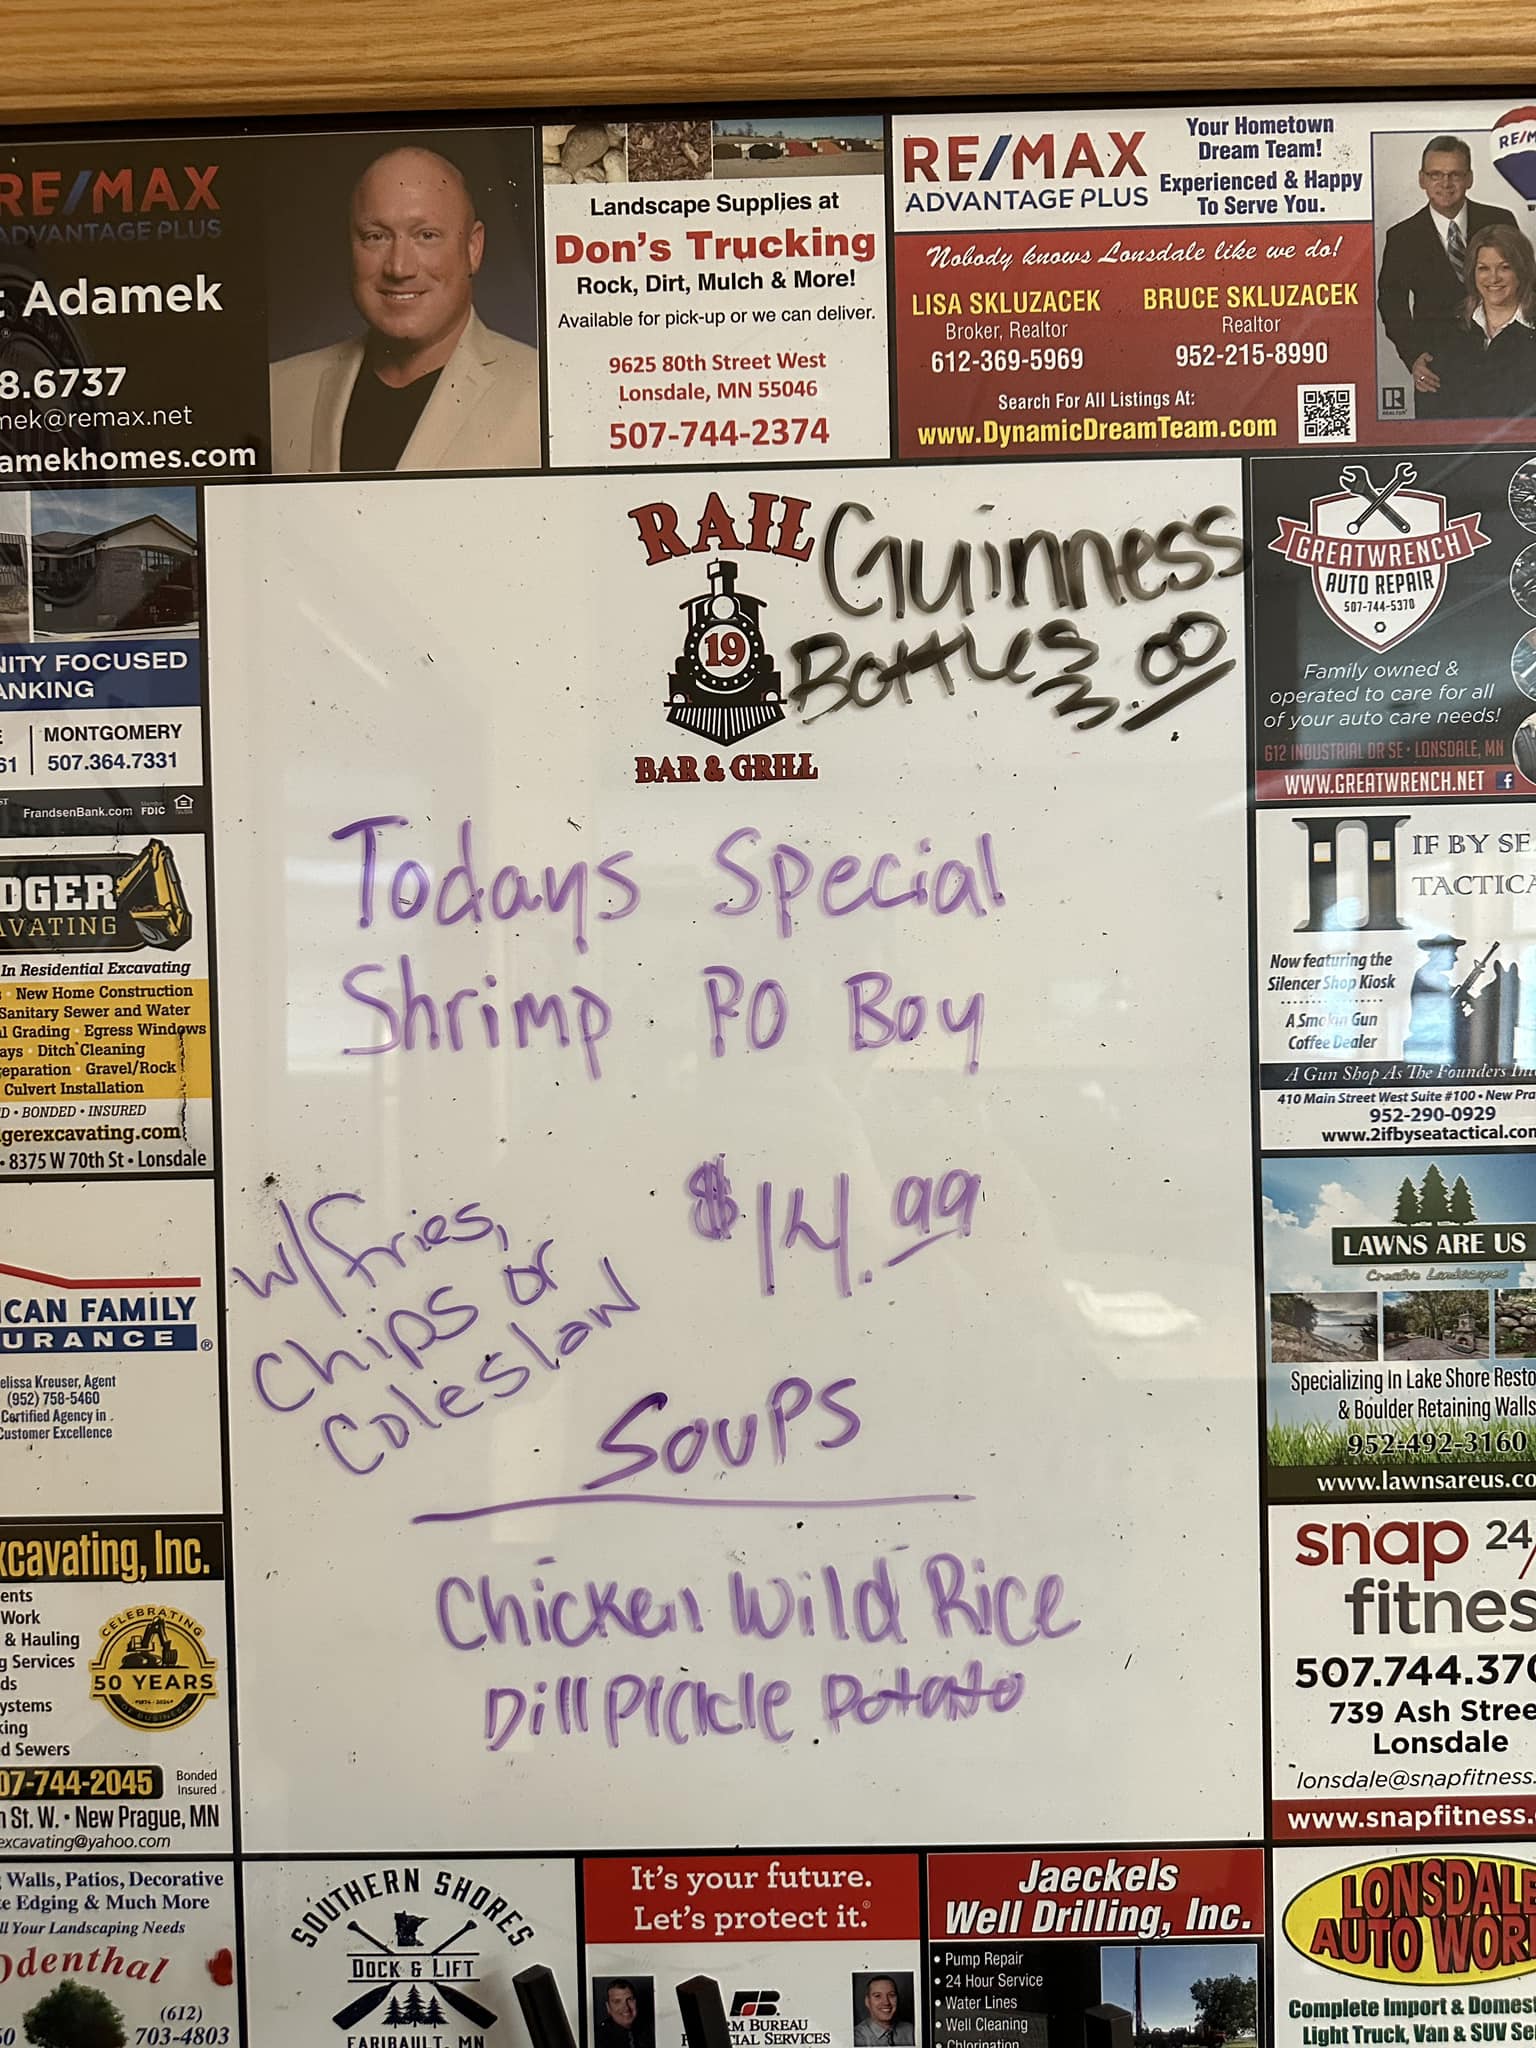 RE/MAX
ADVANTAGE PLUS
Adamek
8.6737
mek@remax.net
amekhomes.com
Landscape Supplies at
Don's Trucking
Rock, Dirt, Mulch & More!
Available for pick-up or we can deliver.
9625 80th Street West
Lonsdale, MN 55046
507-744-2374
RE/MAX
ADVANTAGE PLUS
Your Hometown
Dream Team!
Experienced & Happy
To Serve You.
RE/M
Nobody knows Lonsdale like we do!
LISA SKLUZACEK
Broker, Realtor
612-369-5969
BRUCE SKLUZACEK
Realtor
952-215-8990
Search For All Listings At:
www.DynamicDreamTeam.com
REALTOR
NITY FOCUSED
ANKING
MONTGOMERY
61
507.364.7331
FrandsenBank.com
Member
FDIC
DGER
AVATING
In Residential Excavating
New Home Construction
Sanitary Sewer and Water
l Grading • Egress Windows
ays • Ditch Cleaning
eparation • Gravel/Rock
Culvert Installation
D • BONDED • INSURED
gerexcavating.com
• 8375 W 70th St • Lonsdale
ICAN FAMILY
URANCE ®
elissa Kreuser, Agent
(952) 758-5460
Certified Agency in
Customer Excellence
xcavating, Inc.
ents
Work
& Hauling
g Services
ds
ystems
king
d Sewers
CELEBRATING
50 YEARS
OF BUSINESS
07-744-2045
Bonded
Insured
St. W. • New Prague, MN
excavating@yahoo.com
Walls, Patios, Decorative
te Edging & Much More
ll Your Landscaping Needs
Odenthal
(612)
703-4803
RAIL
19
BAR & GRILL
Guinness
Bottles
3.00
Todays Special
Shrimp PO Boy
$14.99
w/fries,
Chips or
Coleslaw
Soups
Chicken Wild Rice
Dill Pickle Potato
GREATWRENCH
AUTO REPAIR
507-744-5370
Family owned &
operated to care for all
of your auto care needs!
612 INDUSTRIAL DR SE • LONSDALE, MN
WWW.GREATWRENCH.NET f
IF BY SE
TACTICA
Now featuring the
Silencer Shop Kiosk
A Smokin Gun
Coffee Dealer
A Gun Shop As The Founders Int
410 Main Street West Suite #100 • New Pra
952-290-0929
www.2ifbyseatactical.com
LAWNS ARE US
Creative Landscapes
Specializing In Lake Shore Resto
& Boulder Retaining Walls
952-492-3160
www.lawnsareus.co
snap 24/
fitness
507.744.370
739 Ash Stree
Lonsdale
lonsdale@snapfitness.
www.snapfitness.
SOUTHERN SHORES
DOCK & LIFT
FARIBAULT, MN
It's your future.
Let's protect it.®
RM BUREAU
FINANCIAL SERVICES
Jaeckels
Well Drilling, Inc.
• Pump Repair
• 24 Hour Service
• Water Lines
• Well Cleaning
• Chlorination
LONSDALE
AUTO WOR
Complete Import & Domes
Light Truck, Van & SUV Se